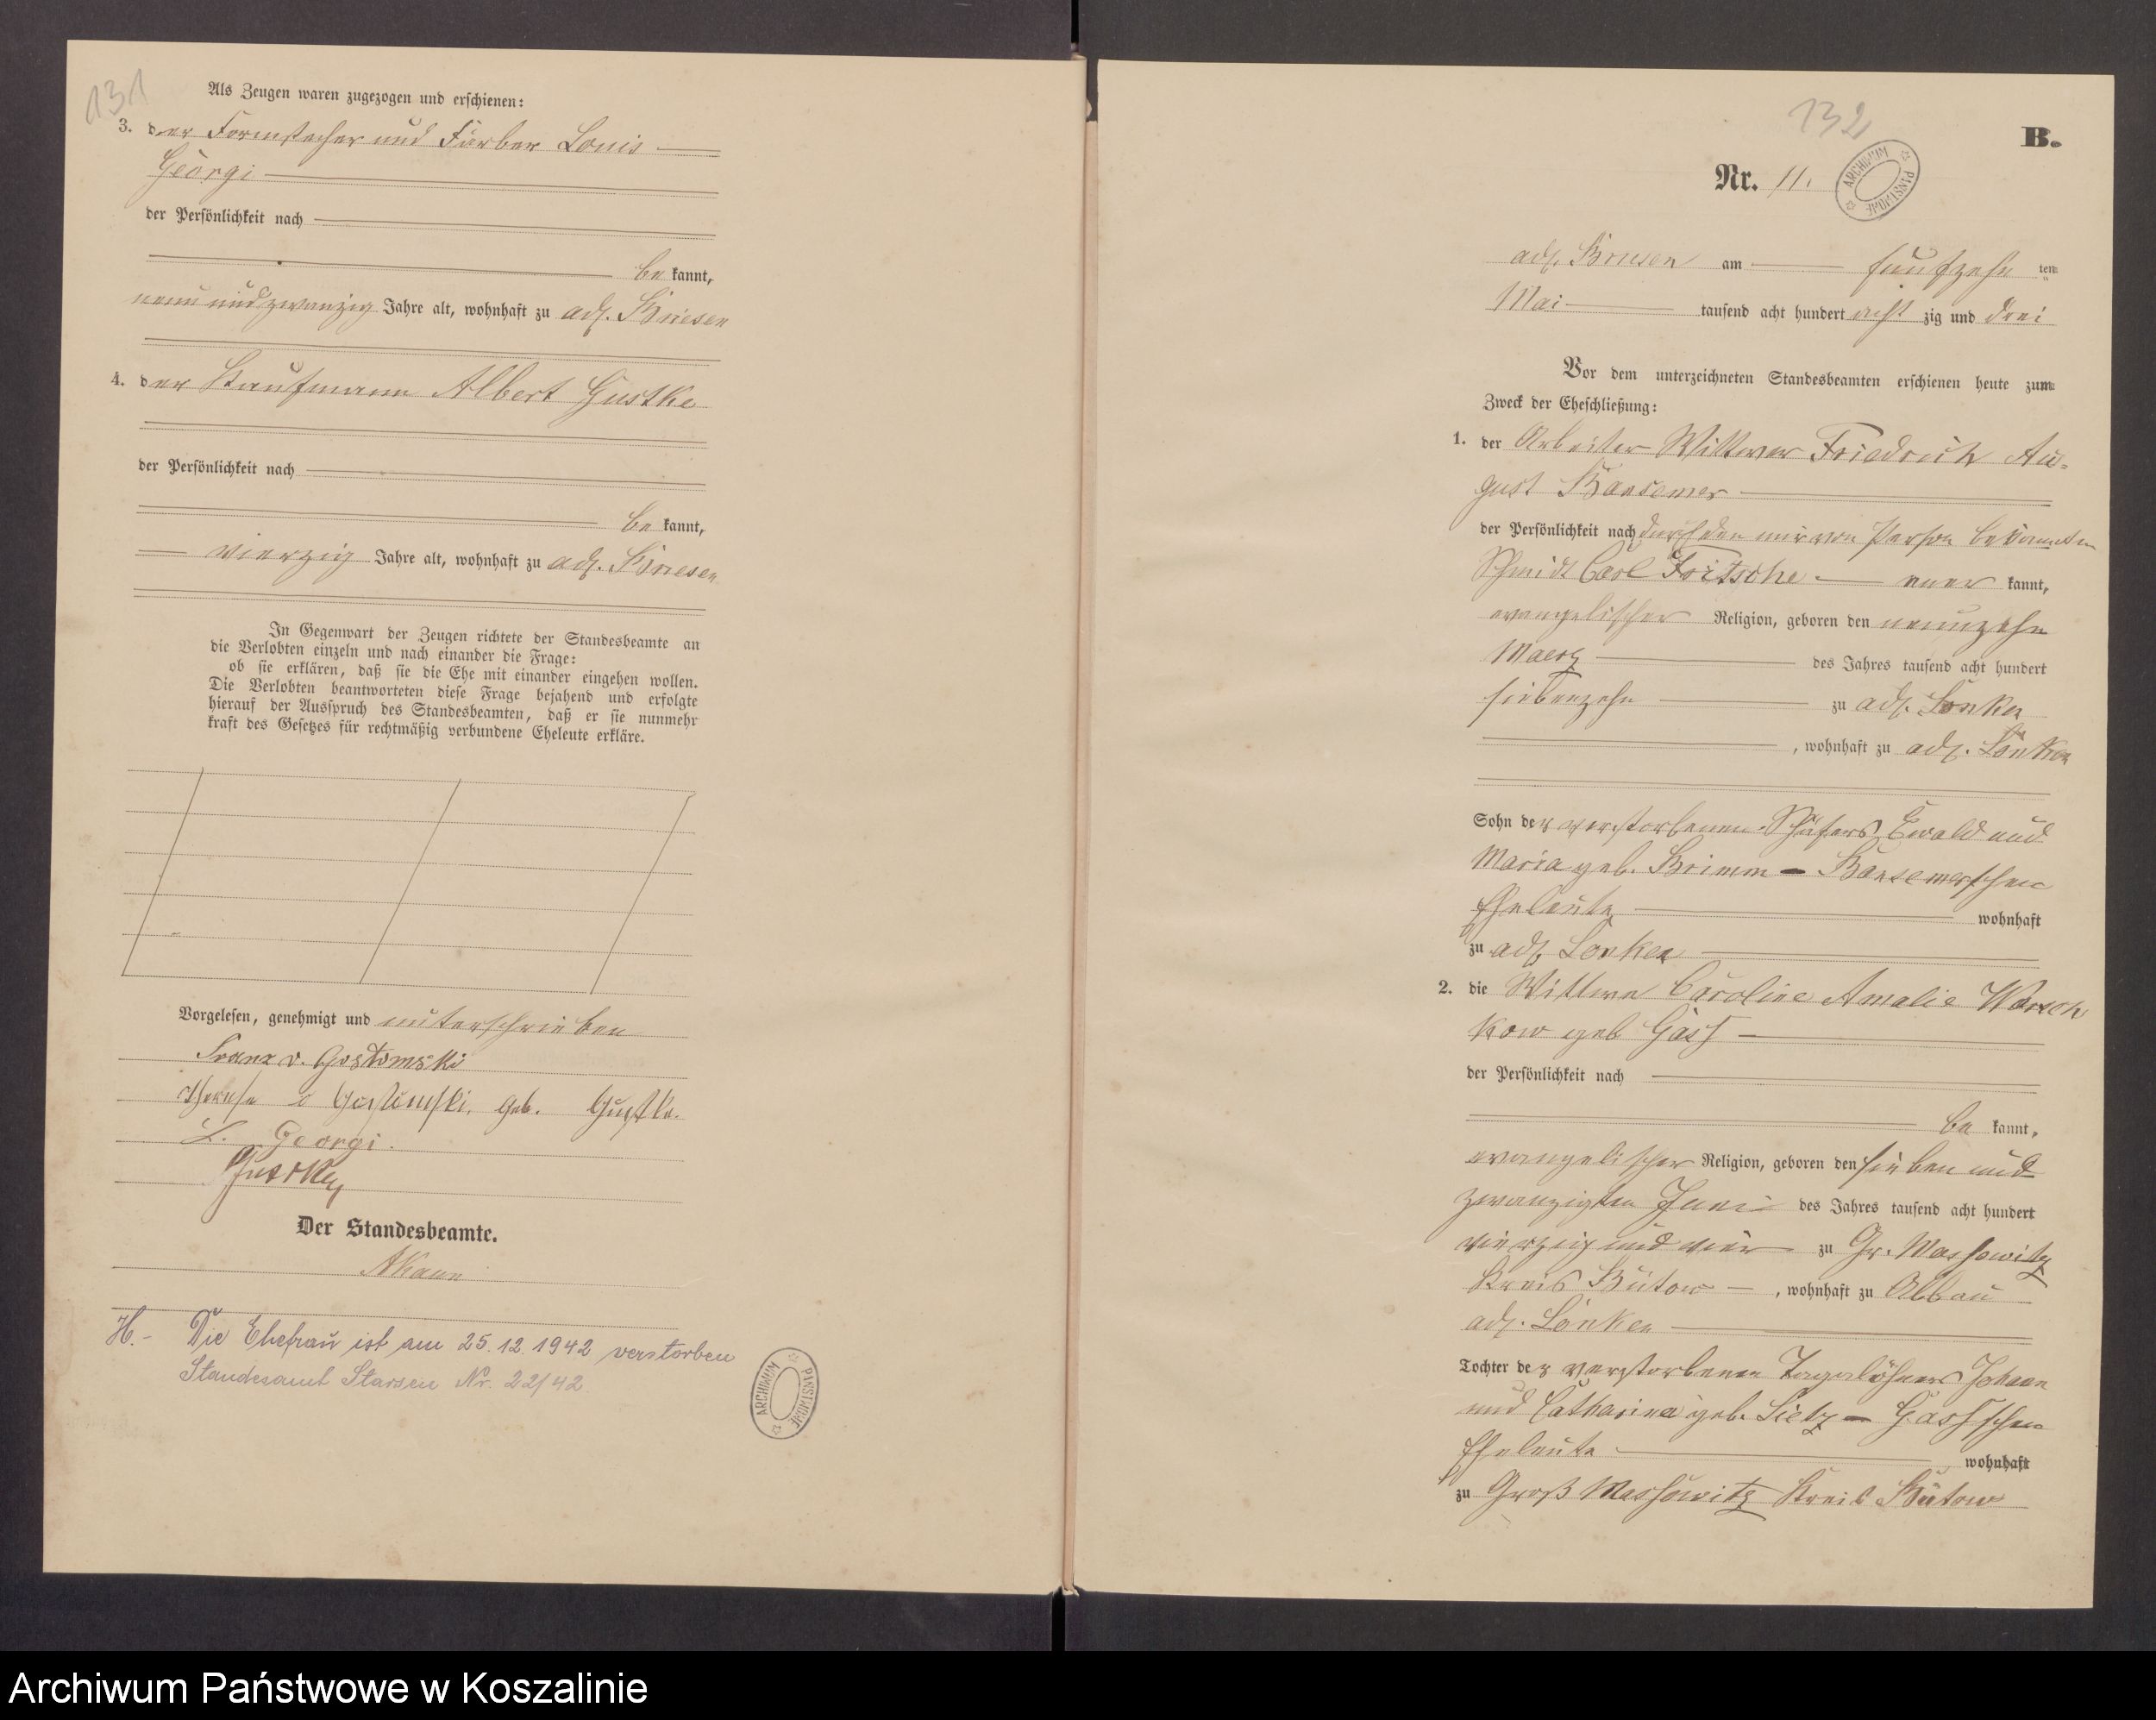 131
Als Zeugen waren zugezogen und erschienen:
3. der Formstecher und Färber Louis
Georgi
der Persönlichkeit nach
be kannt,
neun und zwanzig Jahre alt, wohnhaft zu adl. Briesen
4. der Kaufmann Albert Gustke
der Persönlichkeit nach
be kannt,
vierzig Jahre alt, wohnhaft zu adl. Briesen
In Gegenwart der Zeugen richtete der Standesbeamte an
die Verlobten einzeln und nach einander die Frage:
ob sie erklären, daß sie die Ehe mit einander eingehen wollen.
Die Verlobten beantworteten diese Frage bejahend und erfolgte
hierauf der Ausspruch des Standesbeamten, daß er sie nunmehr
kraft des Gesetzes für rechtmäßig verbundene Eheleute erkläre.
Vorgelesen, genehmigt und unterschrieben
Franz v. Gostomski
v Gostomski. geb. Gustke.
L. Georgi.
Gustke
Der Standesbeamte.
H.- Die Ehefrau ist am 25.12.1942 verstorben
Standesamt Starsen Nr. 22/42
ARCHIWUM PAŃSTWOWE
132
B.
Nr. 11.
ARCHIWUM PAŃSTWOWE
adl. Briesen am fünfzehn ten
Mai tausend acht hundert acht zig und drei
Vor dem unterzeichneten Standesbeamten erschienen heute zum
Zweck der Eheschließung:
1. der Arbeiter Wittwer Friedrich Au-
gust Bansemer
der Persönlichkeit nach durch den mir von Person bekannten
Schmidt Carl Fritsche aner kannt,
evangelischer Religion, geboren den neunzehn
Maerz des Jahres tausend acht hundert
siebenzehn zu adl. Lonken
, wohnhaft zu adl. Lonken
Sohn der verstorbenen Schäfers Ewald und
Maria geb. Brimm - Bansemerschen
Eheleute wohnhaft
zu adl. Lonken
2. die Wittwe Caroline Amalie
kow geb Gass
der Persönlichkeit nach
be kannt,
evangelischer Religion, geboren den sieben und
zwanzigten Juni des Jahres tausend acht hundert
vierzig und vier zu Gr. Massowitz
Kreis Bütow , wohnhaft zu Abbau
adl. Lonken
Tochter der verstorbenen Tagelöhners Johann
und Catharina geb. Sietz - Gassschen
Eheleute wohnhaft
zu Groß Massowitz Kreis Bütow
Archiwum Państwowe w Koszalinie